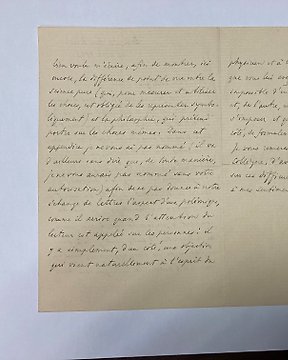 bien voulu m'écrire, afin de montrer, ici
encore, la différence de point de vue entre la
science pure (qui, pour mesurer et utiliser
les choses, est obligée de les reprendre symbo-
liquement) et la philosophie, qui prétend
porter sur les choses mêmes. Dans cet
appendice je ne vous ai pas nommé (il va
d'ailleurs sans dire que, de toute manière,
je ne vous aurais pas nommé sans votre
autorisation) afin de ne pas donner à notre
échange de lettres l'aspect d'une polémique,
comme il arrive quand l'attention du
lecteur est appelée sur les personnes : il
y a simplement, d'un côté, une objection
qui vient naturellement à l'esprit du
physicien et à
que vous les
impossible d'
et, de l'autre,
s'imposer et
côté, se
Je vous
collègue, d'
ces
à mes sentiments